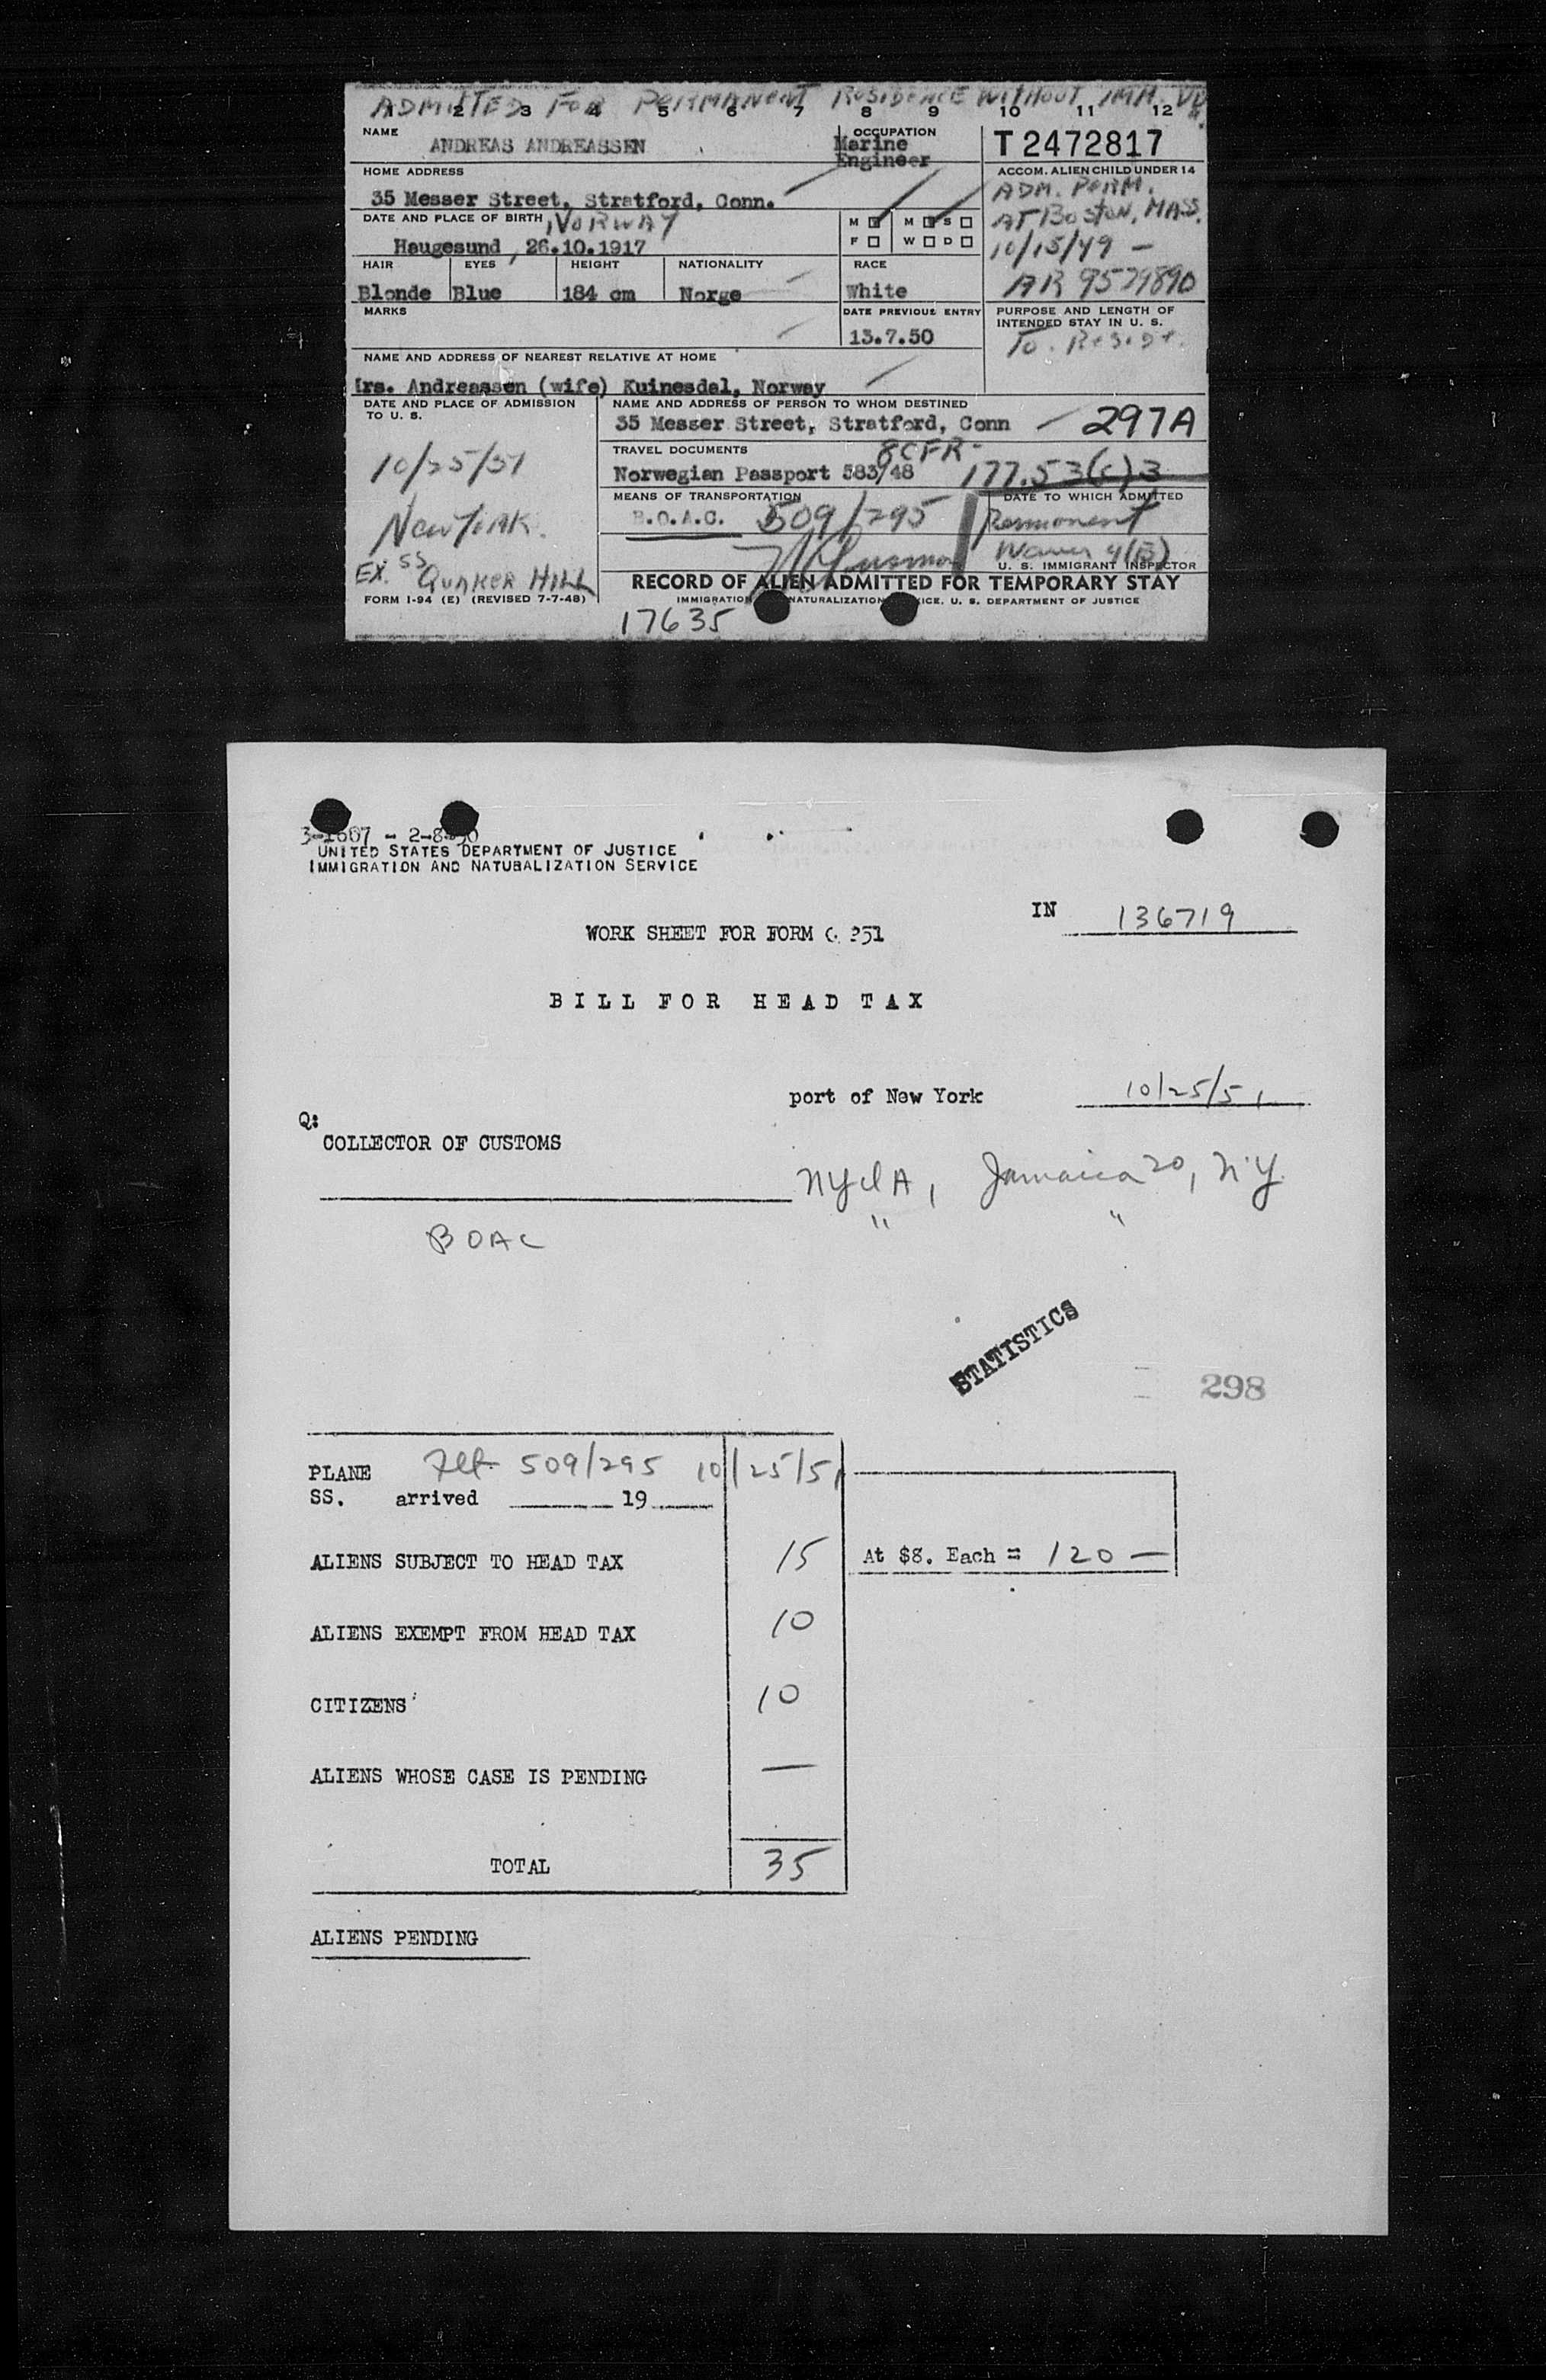 ADMITTED FOR PERMANENT RESIDENCE WITHOUT IMM. VI
2 3 4 5 6 7 8 9 10 11 12
NAME
ANDREAS ANDREASSEN
OCCUPATION
Marine
Engineer
T 2472817
HOME ADDRESS
35 Messer Street, Stratford, Conn.
ACCOM. ALIEN CHILD UNDER 14
ADM. PERM.
AT BOSTON, MASS.
10/15/49 —
AR 9579890
DATE AND PLACE OF BIRTH
, NORWAY
Haugesund , 26.10.1917
M M S
F W D
HAIR EYES HEIGHT NATIONALITY RACE
Blonde Blue 184 cm Norge White
MARKS
DATE PREVIOUS ENTRY
13.7.50
PURPOSE AND LENGTH OF
INTENDED STAY IN U. S.
To. Reside.
NAME AND ADDRESS OF NEAREST RELATIVE AT HOME
Mrs. Andreassen (wife) Kuinesdal, Norway
DATE AND PLACE OF ADMISSION
TO U. S.
10/25/51
New York.
EX. SS QUAKER HILL
FORM I-94 (E) (REVISED 7-7-48)
NAME AND ADDRESS OF PERSON TO WHOM DESTINED
35 Messer Street, Stratford, Conn
297A
TRAVEL DOCUMENTS
8CFR-
Norwegian Passport 583/48
177.53(c)3
MEANS OF TRANSPORTATION
B.O.A.C. 509/295
DATE TO WHICH ADMITTED
Permanent
Waiver 4(B)
U. S. IMMIGRANT INSPECTOR
RECORD OF ALIEN ADMITTED FOR TEMPORARY STAY
IMMIGRATION NATURALIZATION ICE, U. S. DEPARTMENT OF JUSTICE
17635
3-1667 - 2-8-50
UNITED STATES DEPARTMENT OF JUSTICE
IMMIGRATION AND NATURALIZATION SERVICE
IN 136719
WORK SHEET FOR FORM 351
BILL FOR HEAD TAX
port of New York 10/25/51
Q:
COLLECTOR OF CUSTOMS
NYIA, Jamaica 20, N.Y.
" "
BOAC
STATISTICS
298
PLANE Flt 509/295 10/25/51
SS. arrived 19
ALIENS SUBJECT TO HEAD TAX 15 At $8. Each = 120 —
ALIENS EXEMPT FROM HEAD TAX 10
CITIZENS 10
ALIENS WHOSE CASE IS PENDING —
TOTAL 35
ALIENS PENDING